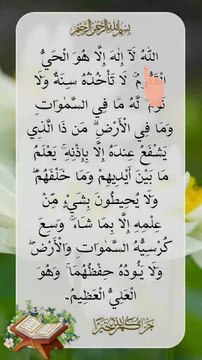 بِسْمِ اللهِ الرَّحْمٰنِ الرَّحِيْمِ
اَللهُ لَآ اِلٰهَ اِلَّا هُوَ الْحَيُّ
الْقَيُّوْمُ ۚ لَا تَأْخُذُهٗ سِنَةٌ وَّلَا
نَوْمٌ ۚ لَهٗ مَا فِي السَّمٰوٰتِ
وَمَا فِي الْاَرْضِ ۗ مَنْ ذَا الَّذِيْ
يَشْفَعُ عِنْدَهٗٓ اِلَّا بِاِذْنِهٖ ۚ يَعْلَمُ
مَا بَيْنَ اَيْدِيْهِمْ وَمَا خَلْفَهُمْ ۚ
وَلَا يُحِيْطُوْنَ بِشَيْءٍ مِّنْ
عِلْمِهٖٓ اِلَّا بِمَا شَآءَ ۚ وَسِعَ
كُرْسِيُّهُ السَّمٰوٰتِ وَالْاَرْضَ ۚ
وَلَا يَـُٔوْدُهٗ حِفْظُهُمَا ۚ وَهُوَ
الْعَلِيُّ الْعَظِيْمُ۔